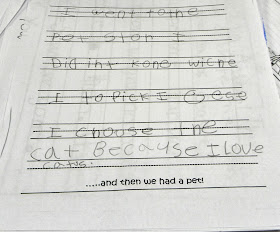 I went to the
Pet Stor I
Did int kone wiche
I to Pick I
I choose the
cat Because I love
cats.
.....and then we had a pet!